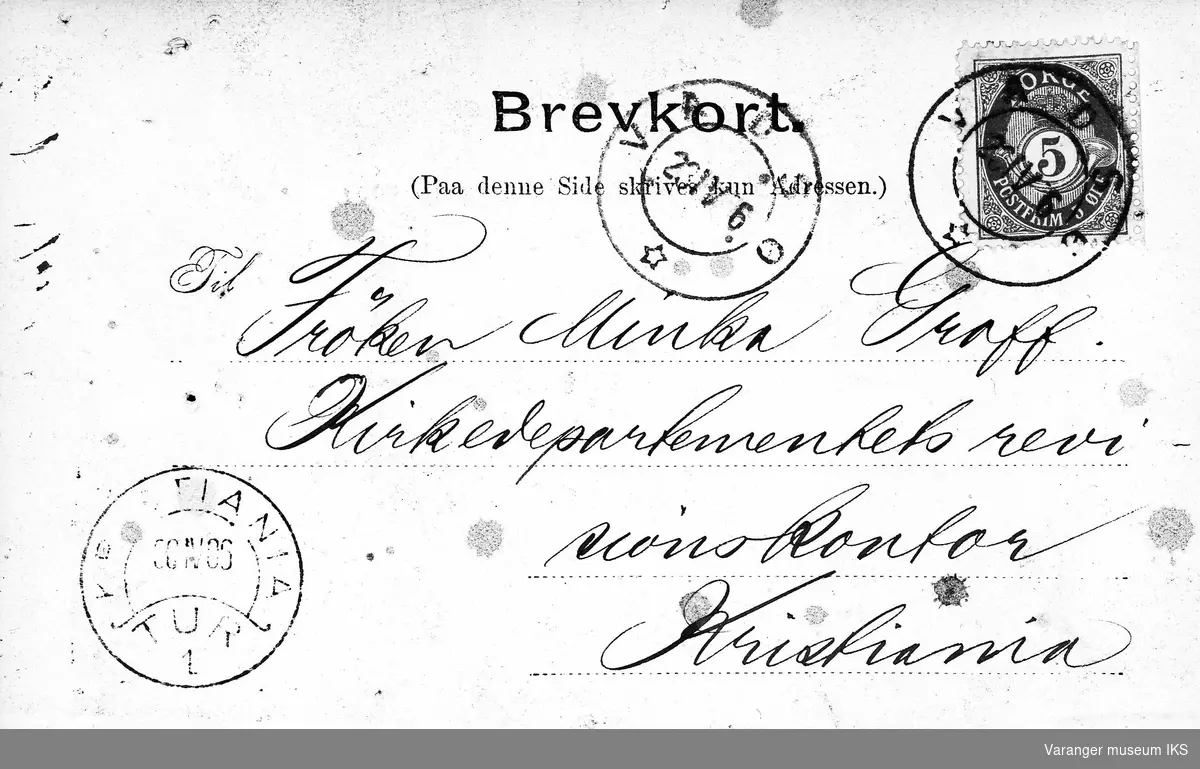 Brevkort.
(Paa denne Side skrives kun Adressen.)
NORGE
5
POSTFRIM. 5 ØRE
VADSØ
22 IV 6
VADSØ
Til Fröken Minka Graff.
Kirkedepartementets revi-
sionskontor
Kristiania
TUR
1
Varanger museum IKS